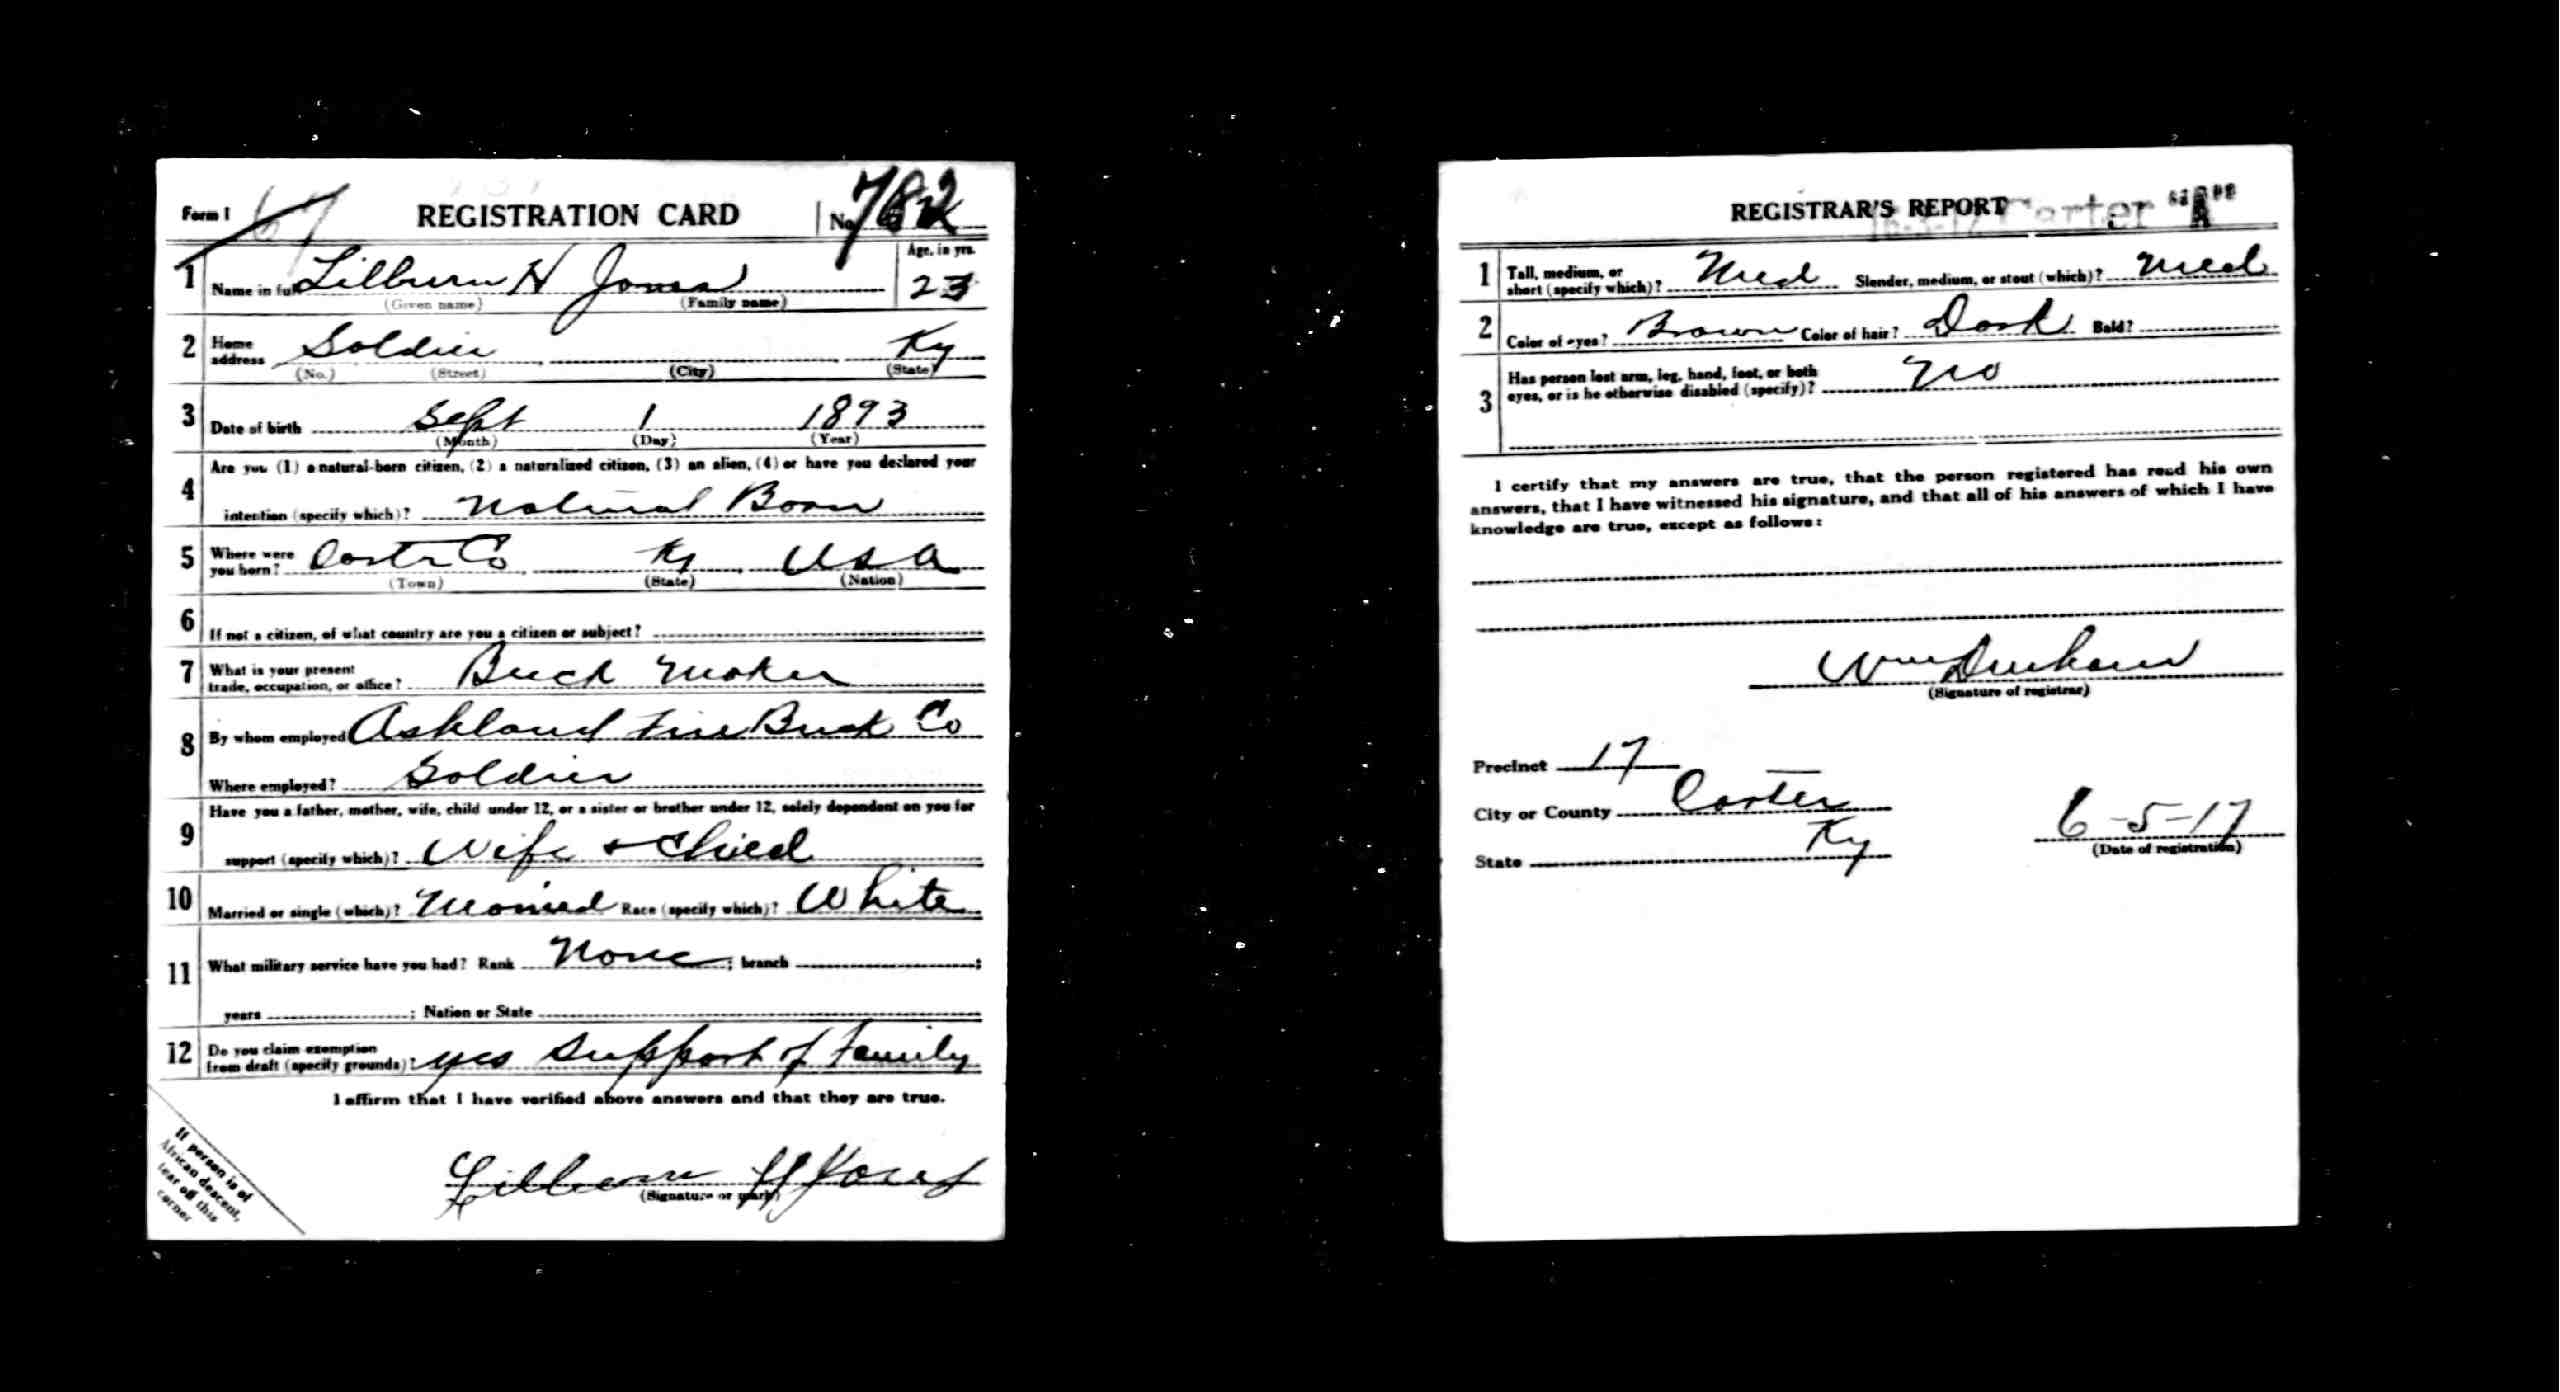 Form 1 67 REGISTRATION CARD No. 782
1 Name in full Lilburn H Jones Age, in yrs.
(Given name) (Family name) 23
2 Home address Soldier Ky
(No.) (Street) (City) (State)
3 Date of birth Sept 1 1893
(Month) (Day) (Year)
4 Are you (1) a natural-born citizen, (2) a naturalized citizen, (3) an alien, (4) or have you declared your
intention (specify which)? Natural Born
5 Where were you born? Carter Co Ky USA
(Town) (State) (Nation)
6 If not a citizen, of what country are you a citizen or subject?
7 What is your present trade, occupation, or office? Brick Maker
8 By whom employed Ashland Fire Brick Co
Where employed? Soldier
9 Have you a father, mother, wife, child under 12, or a sister or brother under 12, solely dependent on you for
support (specify which)? Wife + Child
10 Married or single (which)? Married Race (specify which)? White
11 What military service have you had? Rank None ; branch ;
years ; Nation or State
12 Do you claim exemption from draft (specify grounds)? yes Support of Family
I affirm that I have verified above answers and that they are true.
Lilburn H Jones
(Signature or mark)
If person is of
African descent,
tear off this
corner
REGISTRAR'S REPORT 16-3-17 Carter "A"
1 Tall, medium, or short (specify which)? Med Slender, medium, or stout (which)? Med
2 Color of eyes? Brown Color of hair? Dark Bald?
3 Has person lost arm, leg, hand, foot, or both
eyes, or is he otherwise disabled (specify)? No
I certify that my answers are true, that the person registered has read his own
answers, that I have witnessed his signature, and that all of his answers of which I have
knowledge are true, except as follows:
Wm Durham
(Signature of registrar)
Precinct 17
City or County Carter
State Ky
6-5-17
(Date of registration)